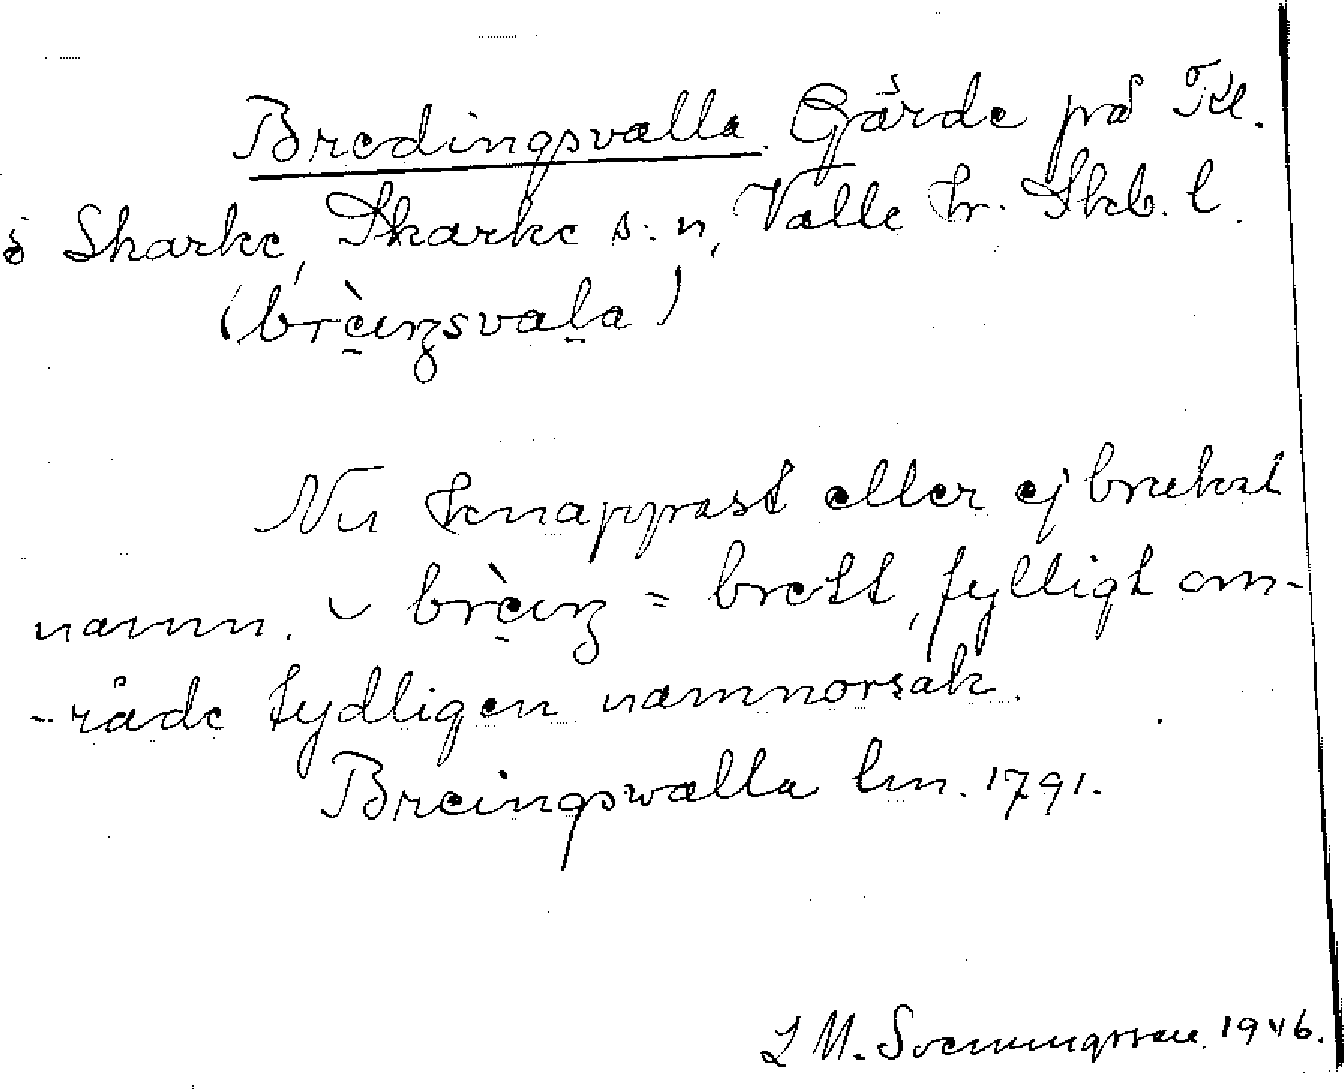 Bredingsvalla. Gärde på Kl.
i Skarke, Skarke s:n, Valle hr. Skb. l.
(brèıŋsvaḷa)
Nu knappast eller ej brukat
namn. brèıŋ = brett, fylligt om-
-råde tydligen namnorsak.
Breingswalla lm. 1791.
L M. Svenungsson 1946.